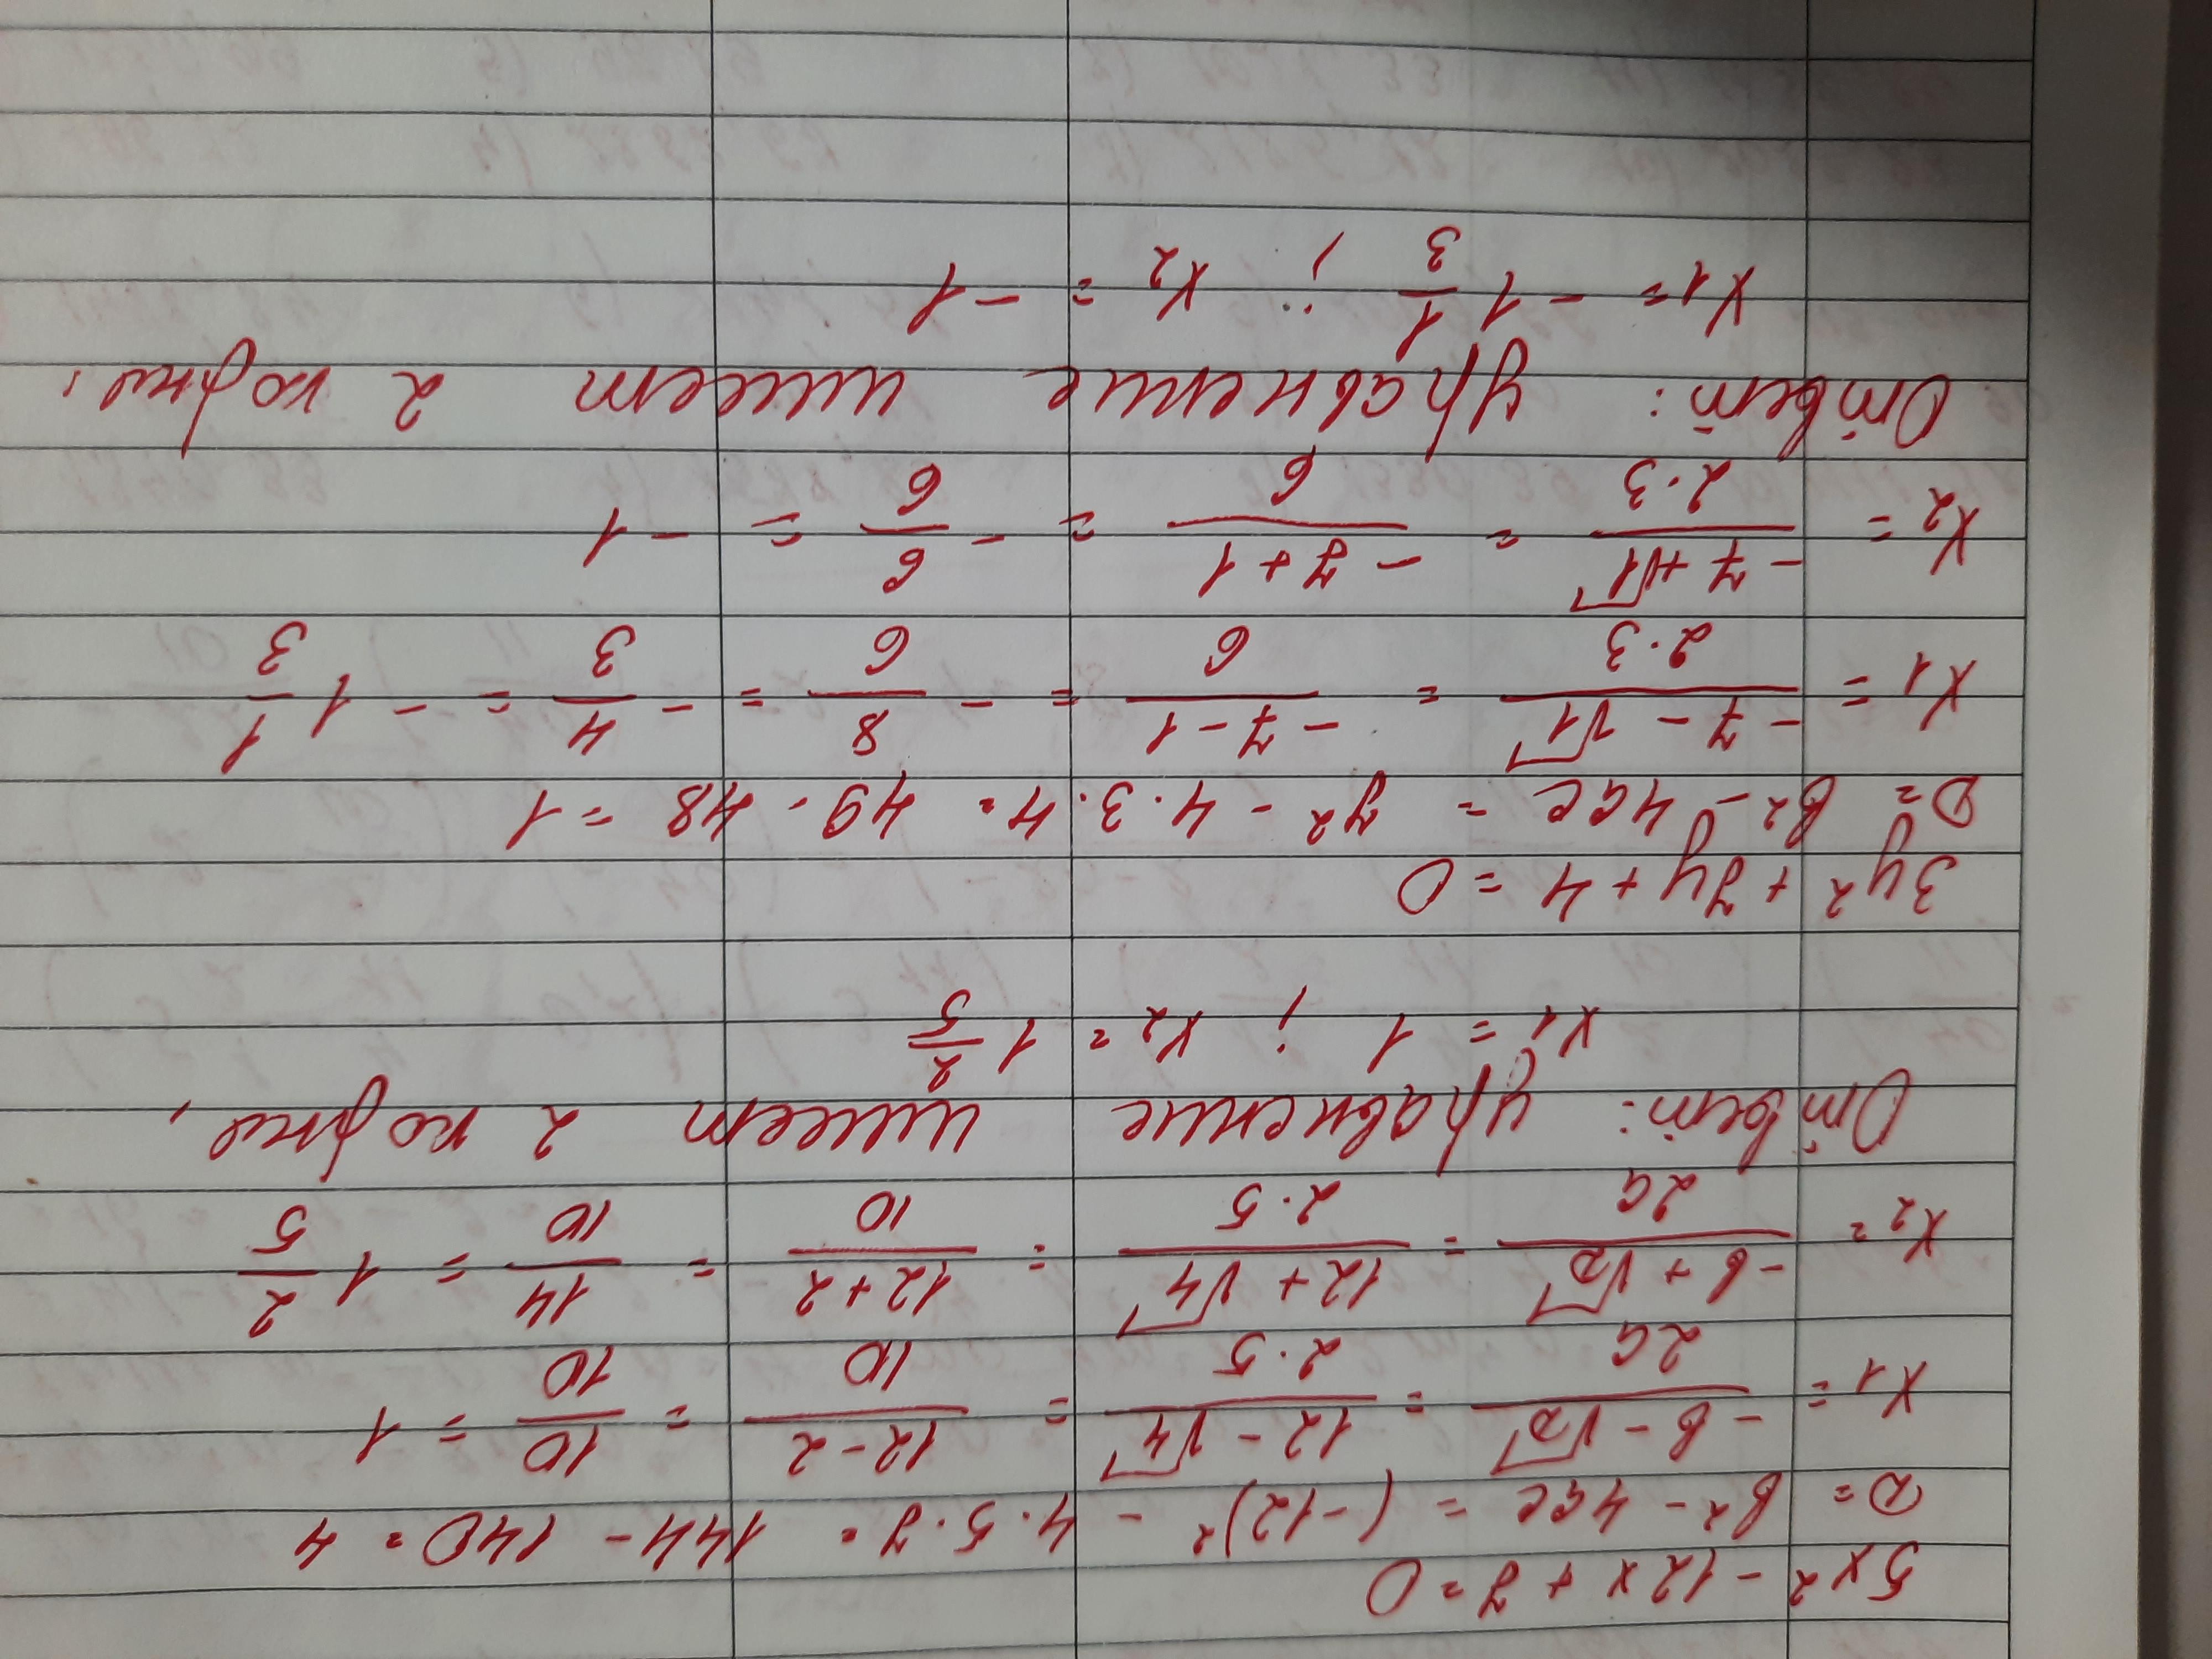 5x² - 12x + 7 = 0
D = b² - 4ac = (-12)² - 4·5·7 = 144 - 140 = 4
x1 = (-b - √D)/2a = (12 - √4)/2·5 = (12 - 2)/10 = 10/10 = 1
x2 = (-b + √D)/2a = (12 + √4)/2·5 = (12 + 2)/10 = 14/10 = 1 2/5
Ответ: уравнение имеет 2 корня,
x1 = 1 ; x2 = 1 2/5
3y² + 7y + 4 = 0
D = b² - 4ac = 7² - 4·3·4 = 49 - 48 = 1
x1 = (-7 - √1)/2·3 = (-7 - 1)/6 = - 8/6 = - 4/3 = - 1 1/3
x2 = (-7 + √1)/2·3 = (-7 + 1)/6 = - 6/6 = - 1
Ответ: уравнение имеет 2 корня,
x1 = - 1 1/3 ; x2 = - 1